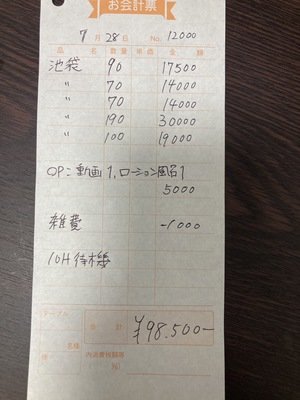 お会計票
7月28日 No. 12000
品名 数量 単価 金額
池袋 90 17500
〃 70 14000
〃 70 14000
〃 190 30000
〃 100 19000
OP:動画1、ローション風呂1
5000
雑費 -1000
10H待機
テーブル
合計 ¥98.500-
名様
係 内消費税額等
%)